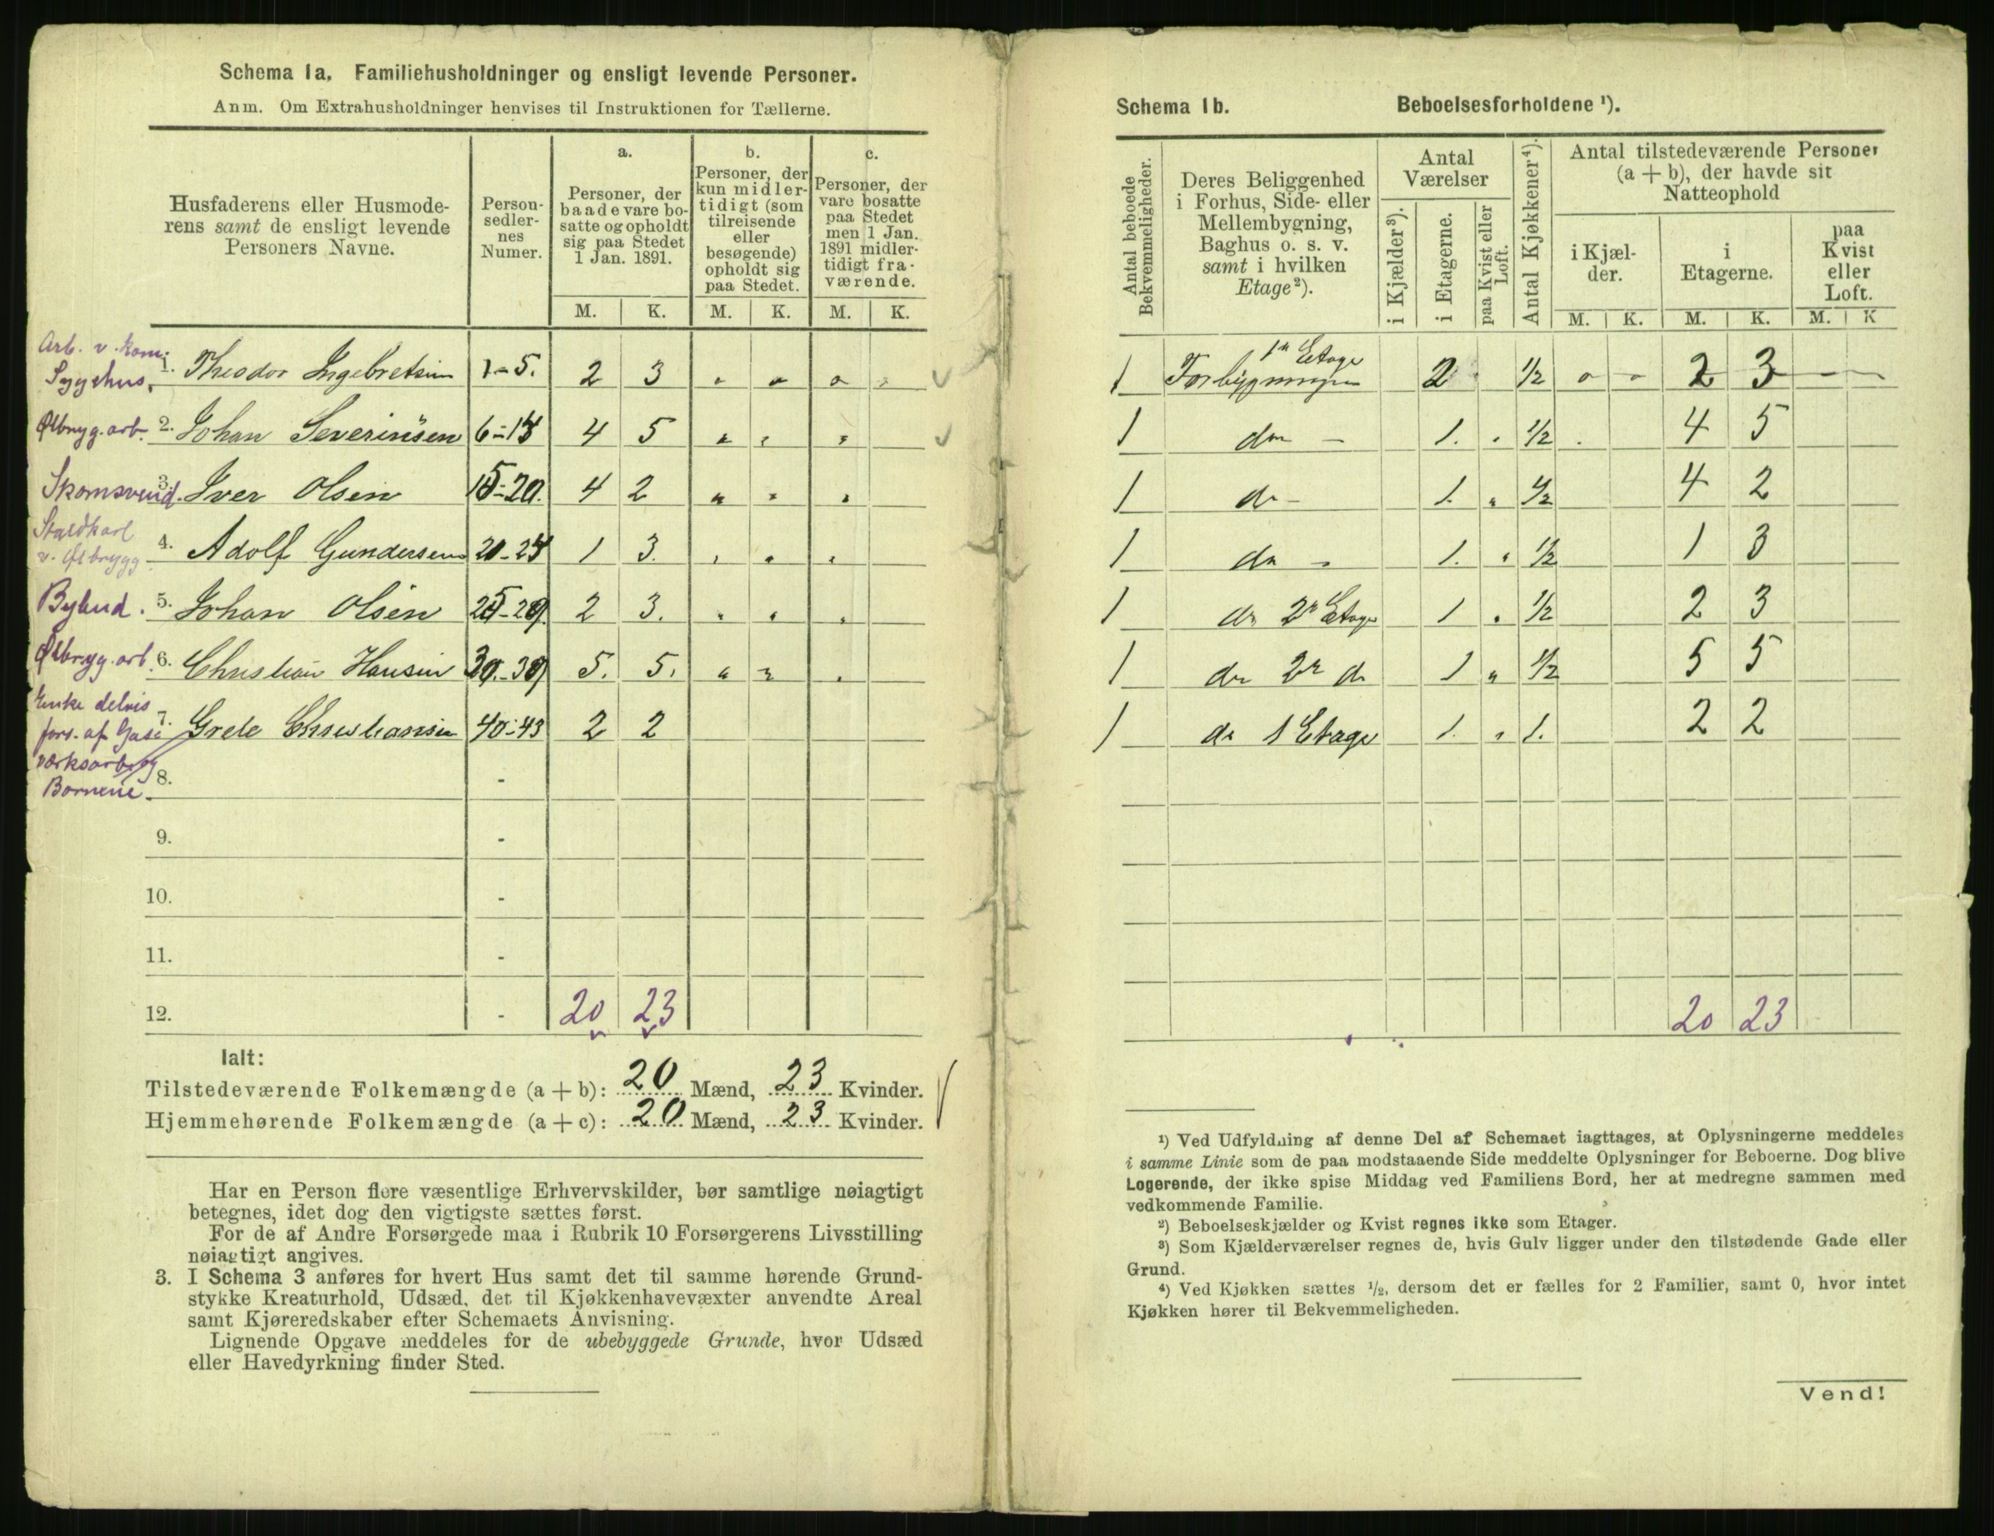 Schema 1a. Familiehusholdninger og ensligt levende Personer.
Anm. Om Extrahusholdninger henvises til Instruktionen for Tællerne.
Husfaderens eller Husmode-
rens samt de ensligt levende
Personers Navne.
Person-
sedler-
nes
Numer.
a.
Personer, der
baade vare bo-
satte og opholdt
sig paa Stedet
1 Jan. 1891.
b.
Personer, der
kun midler-
tidigt (som
tilreisende
eller
besøgende)
opholdt sig
paa Stedet.
c.
Personer, der
vare bosatte
paa Stedet
men 1 Jan.
1891 midler-
tidigt fra-
værende.
M. K. M. K. M. K.
Arb. v. kom.
Sygehus. 1. Theodor Ingebretsen 1-5. 2 3 " " " "
Ølbryg. arb. 2. Johan Severinsen 6-14 4 5 " " "
Skomsvend. 3. Iver Olsen 15-20. 4 2 " " "
Staldkarl
v. Ølbrygg. 4. Adolf Gundersen 21-24 1 3. " " "
Bybud. 5. Johan Olsen 25-29. 2 3. " " "
Ølbryg. arb. 6. Christian Hansen 30-39 5. 5. " " "
Enke delvis
fors. af Gas- 7. Grete Christiansen 40-43 2 2
værksarb. og
Børnene. 8. -
9. -
10. -
11. -
12. - 20 23
Ialt:
Tilstedeværende Folkemængde (a + b): 20 Mænd, 23 Kvinder.
Hjemmehørende Folkemængde (a + c): 20 Mænd, 23 Kvinder.
Har en Person flere væsentlige Erhvervskilder, bør samtlige nøiagtigt
betegnes, idet dog den vigtigste sættes først.
For de af Andre Forsørgede maa i Rubrik 10 Forsørgerens Livsstilling
nøiagtigt angives.
3. I Schema 3 anføres for hvert Hus samt det til samme hørende Grund-
stykke Kreaturhold, Udsæd, det til Kjøkkenhavevæxter anvendte Areal
samt Kjøreredskaber efter Schemaets Anvisning.
Lignende Opgave meddeles for de ubebyggede Grunde, hvor Udsæd
eller Havedyrkning finder Sted.
Schema 1b. Beboelsesforholdene ¹).
Antal beboede
Bekvemmeligheder.
Deres Beliggenhed
i Forhus, Side- eller
Mellembygning,
Baghus o. s. v.
samt i hvilken
Etage²).
Antal
Værelser
i Kjælder³).
i Etagerne.
paa Kvist eller
Loft.
Antal Kjøkkener⁴).
Antal tilstedeværende Personer
(a + b), der havde sit
Natteophold
i Kjæl-
der.
i
Etagerne.
paa
Kvist
eller
Loft.
M. K. M. K. M. K
1 Forbygningen 1ste Etage 2 ½ " " 2 3 - -
1 do - 1. " ½ 4 5
1 do - 1. " ½ 4 2
1 do - 1. " ½ 1 3
1 do 2n Etage 1 " ½ 2 3
1 do 2n do 1 " ½ 5 5
1 do 1 Etage 1. " 1. 2 2
20 23
¹) Ved Udfyldning af denne Del af Schemaet iagttages, at Oplysningerne meddeles
i samme Linie som de paa modstaaende Side meddelte Oplysninger for Beboerne. Dog blive
Logerende, der ikke spise Middag ved Familiens Bord, her at medregne sammen med
vedkommende Familie.
²) Beboelseskjælder og Kvist regnes ikke som Etager.
³) Som Kjælderværelser regnes de, hvis Gulv ligger under den tilstødende Gade eller
Grund.
⁴) Ved Kjøkken sættes ½, dersom det er fælles for 2 Familier, samt 0, hvor intet
Kjøkken hører til Bekvemmeligheden.
Vend!